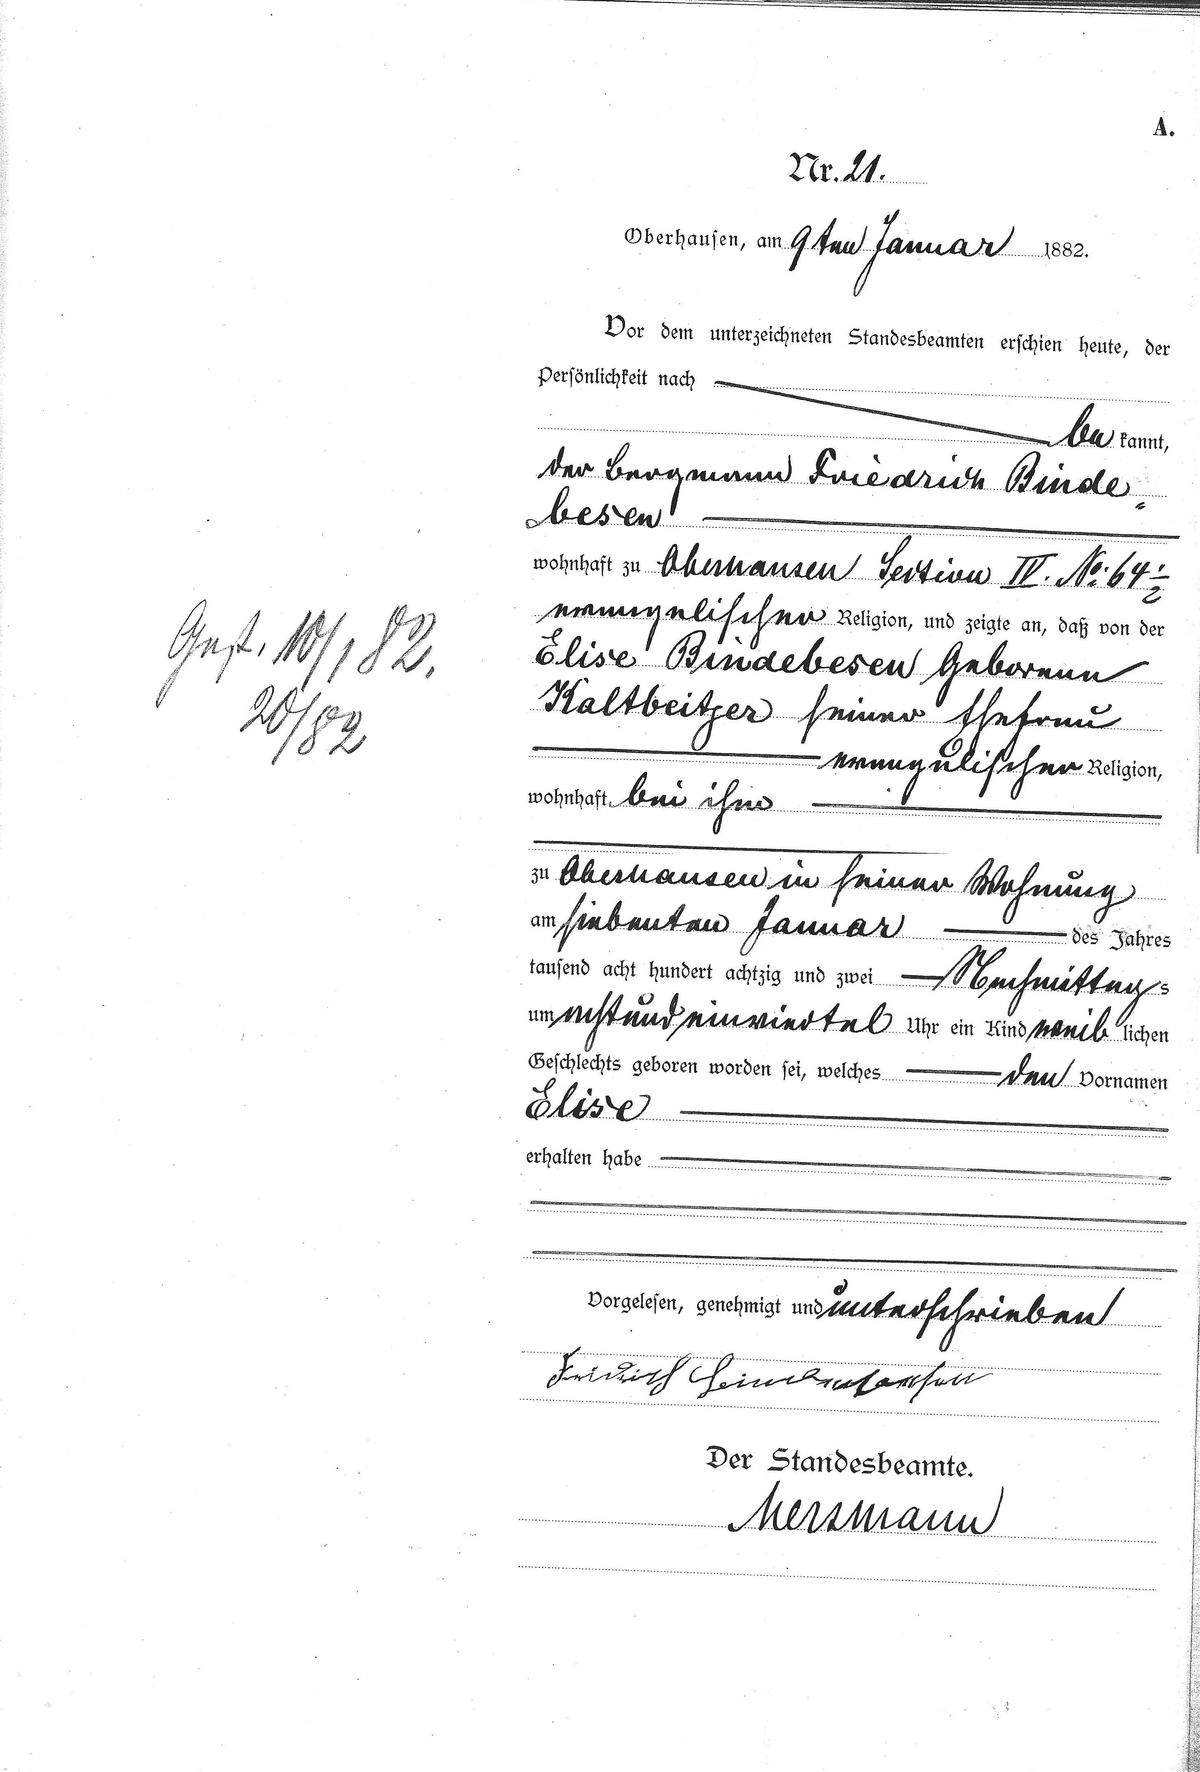 A.
Nr. 21.
Oberhausen, am 9ten Januar 1882.
Vor dem unterzeichneten Standesbeamten erschien heute, der
Persönlichkeit nach
be kannt,
der Bergmann Friedrich Binde„
besen
wohnhaft zu Oberhausen Section IV. No: 64 1/2
evangelischer Religion, und zeigte an, daß von der
Elise Bindebesen Geborenen
Kaltbeitzer seiner Ehefrau
evangelischer Religion,
wohnhaft bei ihm
zu Oberhausen in seiner Wohnung
am siebenten Januar des Jahres
tausend acht hundert achtzig und zwei Nachmittags
um acht und einviertel Uhr ein Kind weib lichen
Geschlechts geboren worden sei, welches den Vornamen
Elise
erhalten habe
Vorgelesen, genehmigt und unterschrieben
Friedrich
Der Standesbeamte.
Mersmann
10/1 82.
20/82